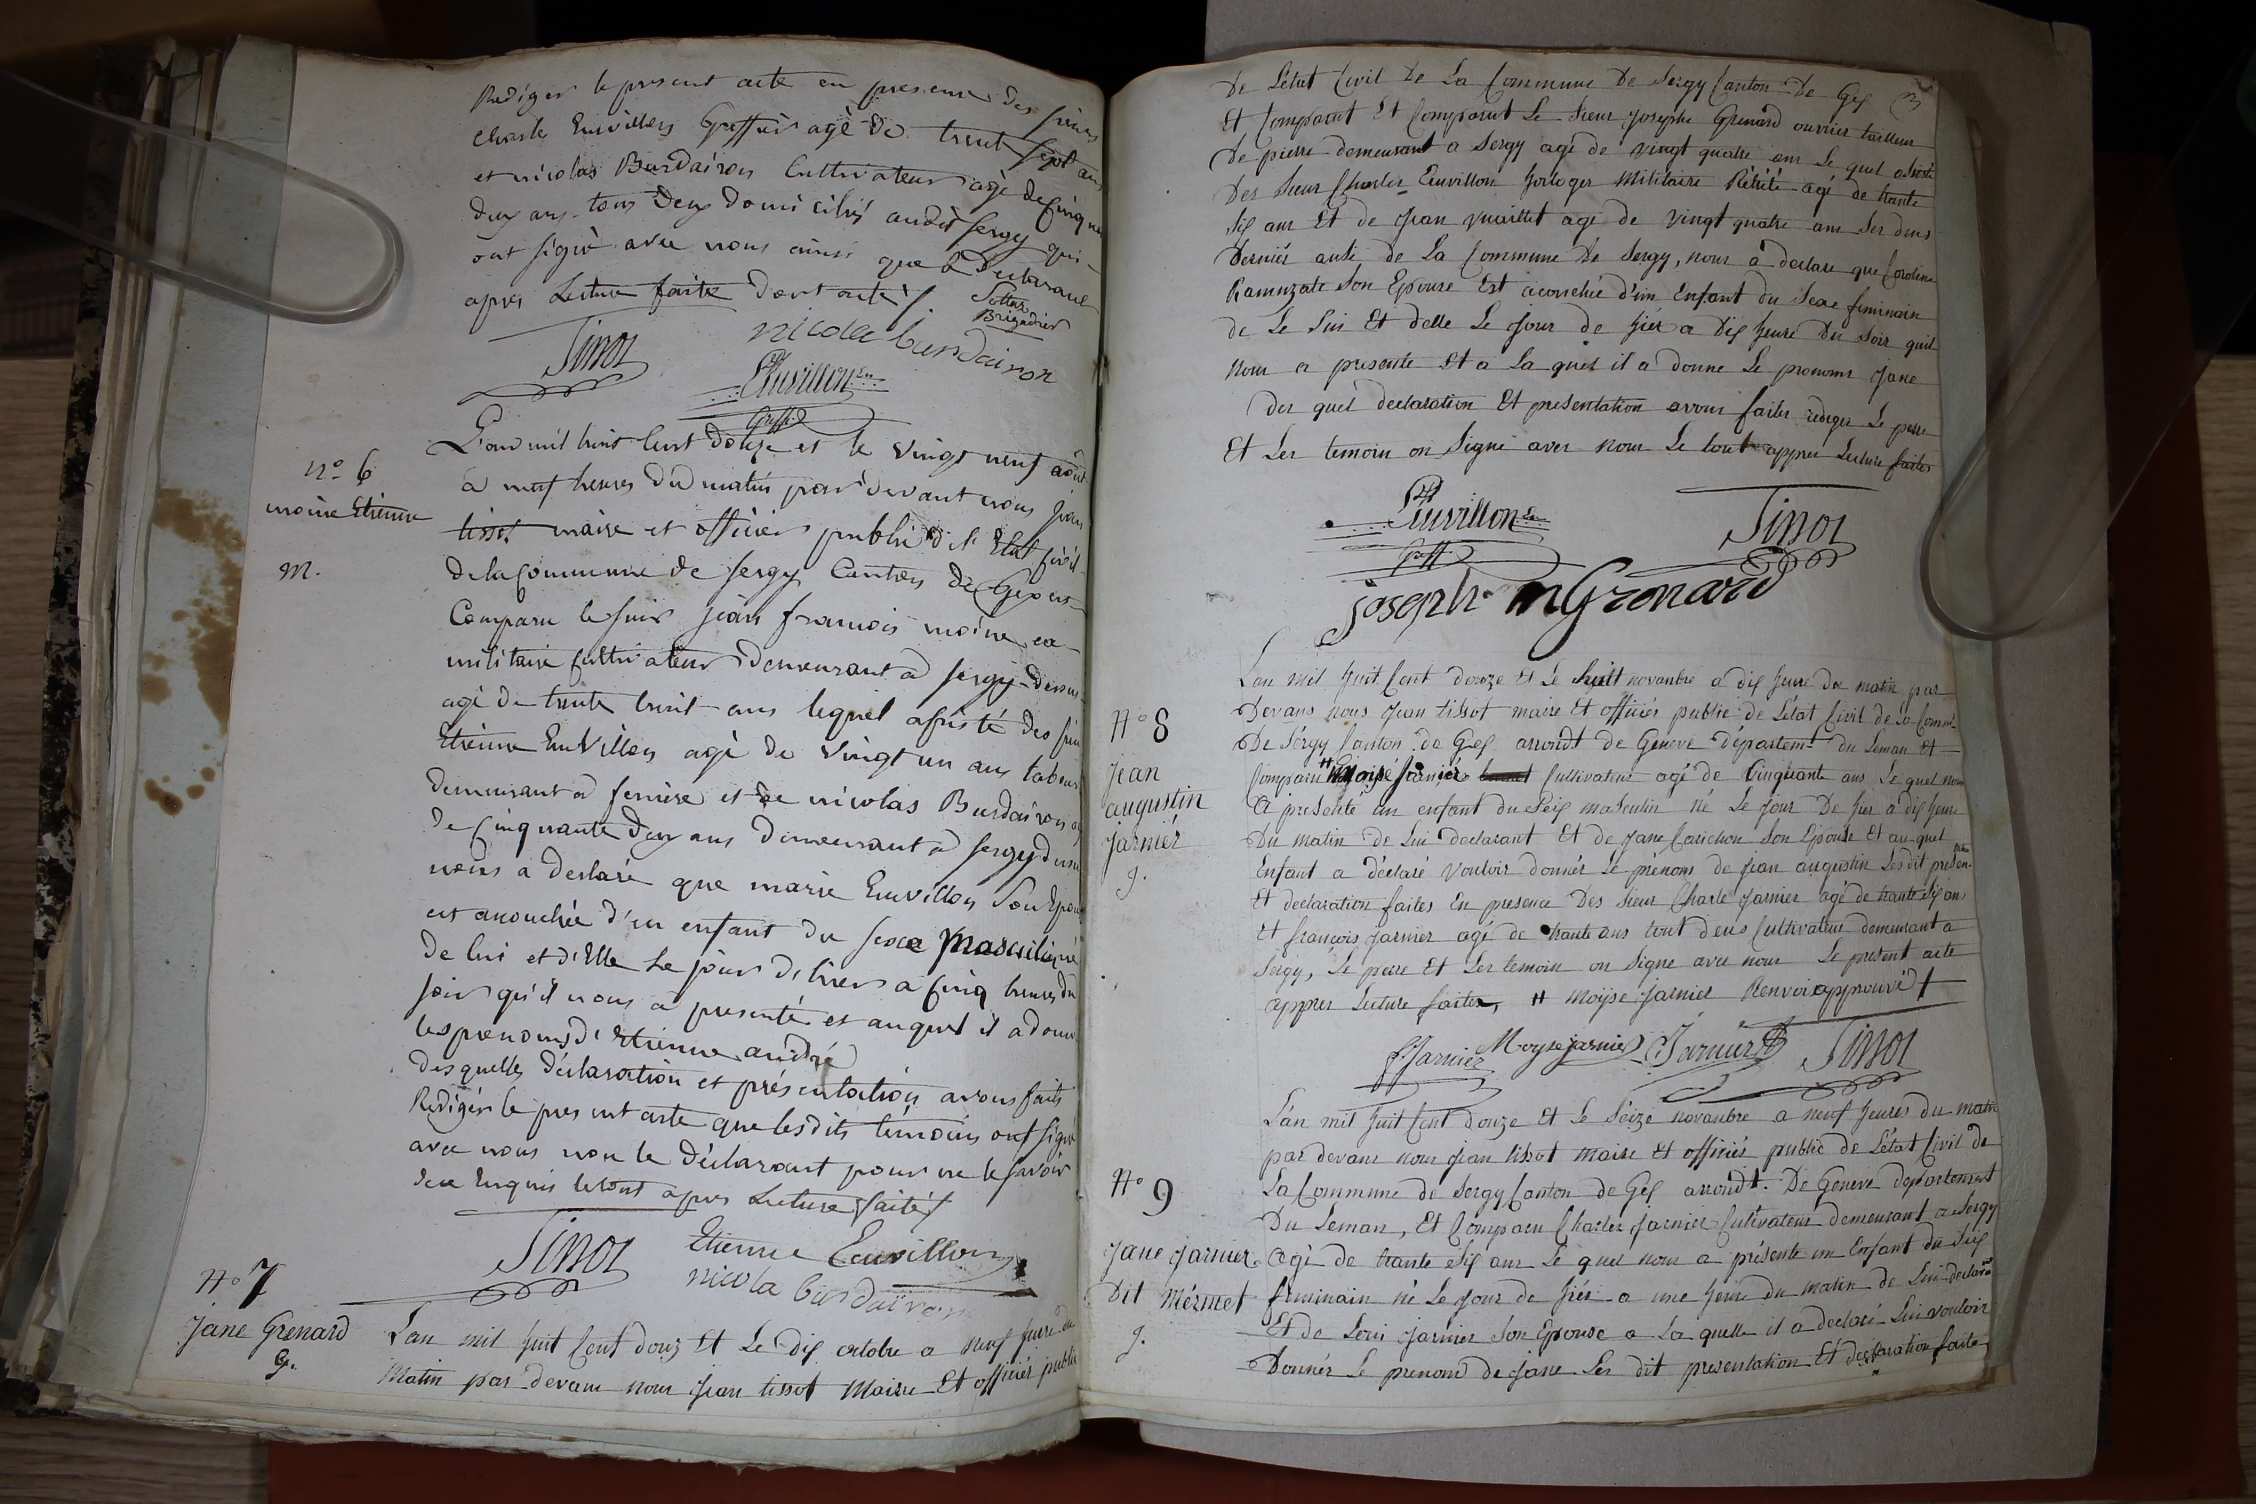 Rediger le present acte en presence des sieurs
Charle Emvillon Greffier agé de trent sept ans
et nicolas Burdairon Cultivateur agé de cinquante
deux ans tous deux domiciliés audit sergy qui
ont signé avec nous ainsi que le declarant
apres lecture faite dont acte
Brigadier
Tissot
nicola burdairon
Emvillon
Greff.
n° 6
moine Etienne
m.
L'an mil huit cent douze et le vingt neuf août
à neuf heures du matin par devant nous jean
tissot maire et officier public de l'Etat civil
de la commune de sergy Canton de Gex est
Comparu le sieur jean francois moine ex
militaire cultivateur demeurant à sergy dessus
agé de trente huit ans lequel assisté des sieurs
Etienne Emvillon agé de vingt un ans laboureur
demeurant à et de nicolas Burdairon agé
de cinquante deux ans demeurant à sergy dessus
nous a declaré que marie Emvillon Son Epouse
est accouchée d'un enfant du sexe masculin né
de lui et d'Elle le jour d'hier à cinq heures du
soir qu'il nous a presenté et auquel il a donné
les prenoms d'Etienne andré
desquelles déclaration et présentation avons faits
Rediger le present acte que lesdits témoins ont signé
avec nous non le déclarant pour ne le savoir
de ce Enquis le tout apres lecture faite
Tissot
Etienne Emvillon
nicola burdairon
N° 7
Jane Grenard
G.
L'an mil huit Cent douz Et Le dix octobre a neuf heure du
Matin par devans nous jean tissot Maire Et officier public
3
De L'état Civil De La Commune De Sergy Canton De Gex
Et Comparut Et Comparut Le Sieur Josephe Grenard ouvrier tailleur
De pierre demeurant a Sergy agé de vingt quatre ans Le quel asisté
Des Sieur Charles Emvillon horloger Militaire Rétité agé de trante
Six ans Et de Jean Vuaillet agé de vingt quatre ans Les deus
Dernier ausi de La Commune De Sergy, nous à declare que Caroline
Ramuzate Son Epouse Est acouchée d'un Enfant du Sexe feminain
de Le Lui Et delle Le Jour de hier a Dix heure Du Soir quil
Nous a presente Et a La quel il a donne Le pronoms Jane
Des quel declaration Et presentation avons faites rediger Le pere
Et Les temoin on Signé avec nous Le tout apprer Lecture faites
Emvillon
Greff
Tissot
joseph Grenard
N° 8
Jean
augustin
Jarnier
g.
L'an Mil huit Cent douze Et Le huitt novanbre a dix heure du matin par
Devans Nous Jean tissot maire Et officier public de L'état Civil de La Comm.
De Sergy Canton de Gex arrondt de Geneve Département du Leman Et
Comparu Moisé Jarnier Cultivateur agé de Cinquante ans Le quel nous
a presenté un enfant du Seix masculin né Le jour De hier a dix heure
Du Matin de Lui declarant Et de Jane Carichon Son Epouse Et au quel
Enfant a déclaré vouloir donnér Le prénoms de Jean augustin Les dit présen-
Et declaration faites En presence Des Sieur Charle Jarnier agé de trante Six ans
Et françois Jarnier agé de trante ans tout deus Cultivateur demeurant a
Sergy, Le pere Et Les temoin on Signe avec nous Le present acte
apprer Lecture faites, # Moÿse Jarnier Renvoi approuvé
f. Jarnier
Moyse jarnier
C. Jarnier
Tissot
N° 9
Jane Jarnier
Dit Mérmet
g.
L'an mil huit Cent douze Et Le Séize novanbre a neuf heures du matin
par devans nous Jean tissot Maire Et officier public de L'état Civil de
La Commune de Sergy Canton de Gex arrondt. De Geneve département
Du Leman, Et Comparu Charles Jarnier Cultivateur demeurant a Sergy
agé de trante Six ans Le quel nous a présente un Enfant du Seix
feminain né Le jour de hier a une heure du matin de Lui declarant
Et de Loui Jarnier Son Epouse a La quelle il a declaré Lui vouloir
Donnér Le prenoms de Jane Les dit presentation Et declaration faite